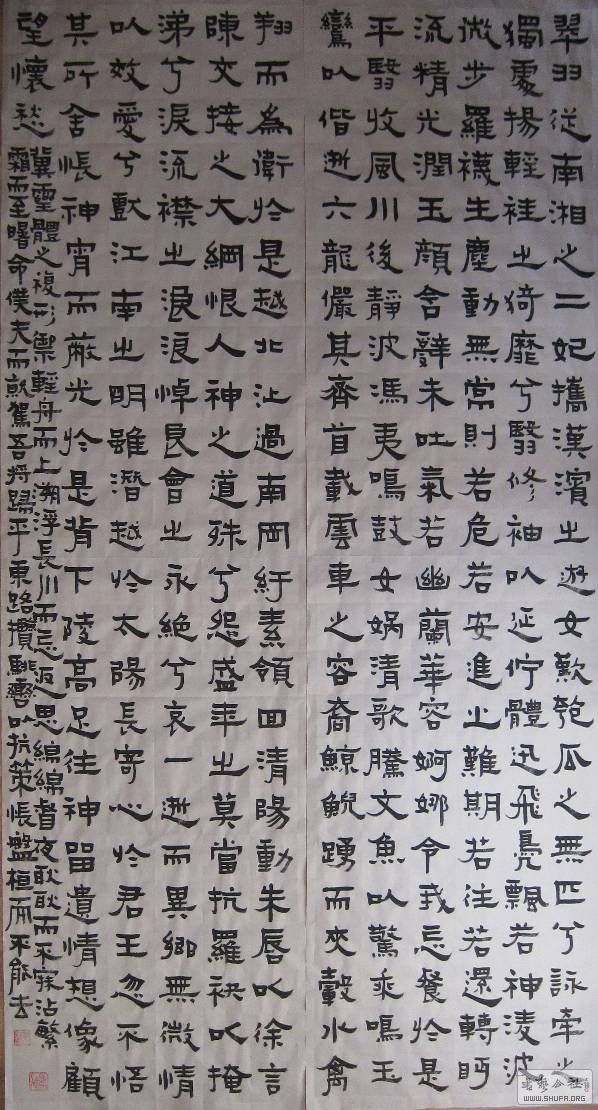 翠羽從南湘之二妃攜漢濱之遊女歎匏瓜之無匹兮詠牽之
獨處揚輕袿之猗靡兮翳修袖以延佇體迅飛鳧飄若神淩波
微步羅襪生塵動無常則若危若安進止難期若往若還轉眄
流精光潤玉顏含辭未吐氣若幽蘭華容婀娜令我忘餐於是
平翳收風川後靜波馮夷鳴鼓女媧清歌騰文魚以驚乘鳴玉
鸞以偕逝六龍儼其齊首載雲車之容裔鯨鯢踴而夾轂水禽
翔而為衛於是越北沚過南岡紆素領回清陽動朱唇以徐言
陳交接之大綱恨人神之道殊兮怨盛年之莫當抗羅袂以掩
涕兮淚流襟之浪浪悼良會之永絕兮哀一逝而異鄉無微情
以效愛兮獻江南之明雖潛越於太陽長寄心於君王忽不悟
其所舍悵神宵而蔽光於是背下陵高足往神留遺情想像顧
望懷愁
冀靈體之複形禦輕舟而上溯浮長川而忘返思綿綿督夜耿耿而不寐沾繁
霜而至曙命僕夫而就駕吾將歸乎東路攬騑轡以抗策悵盤桓而不能去
WWW.SHUFA.ORG